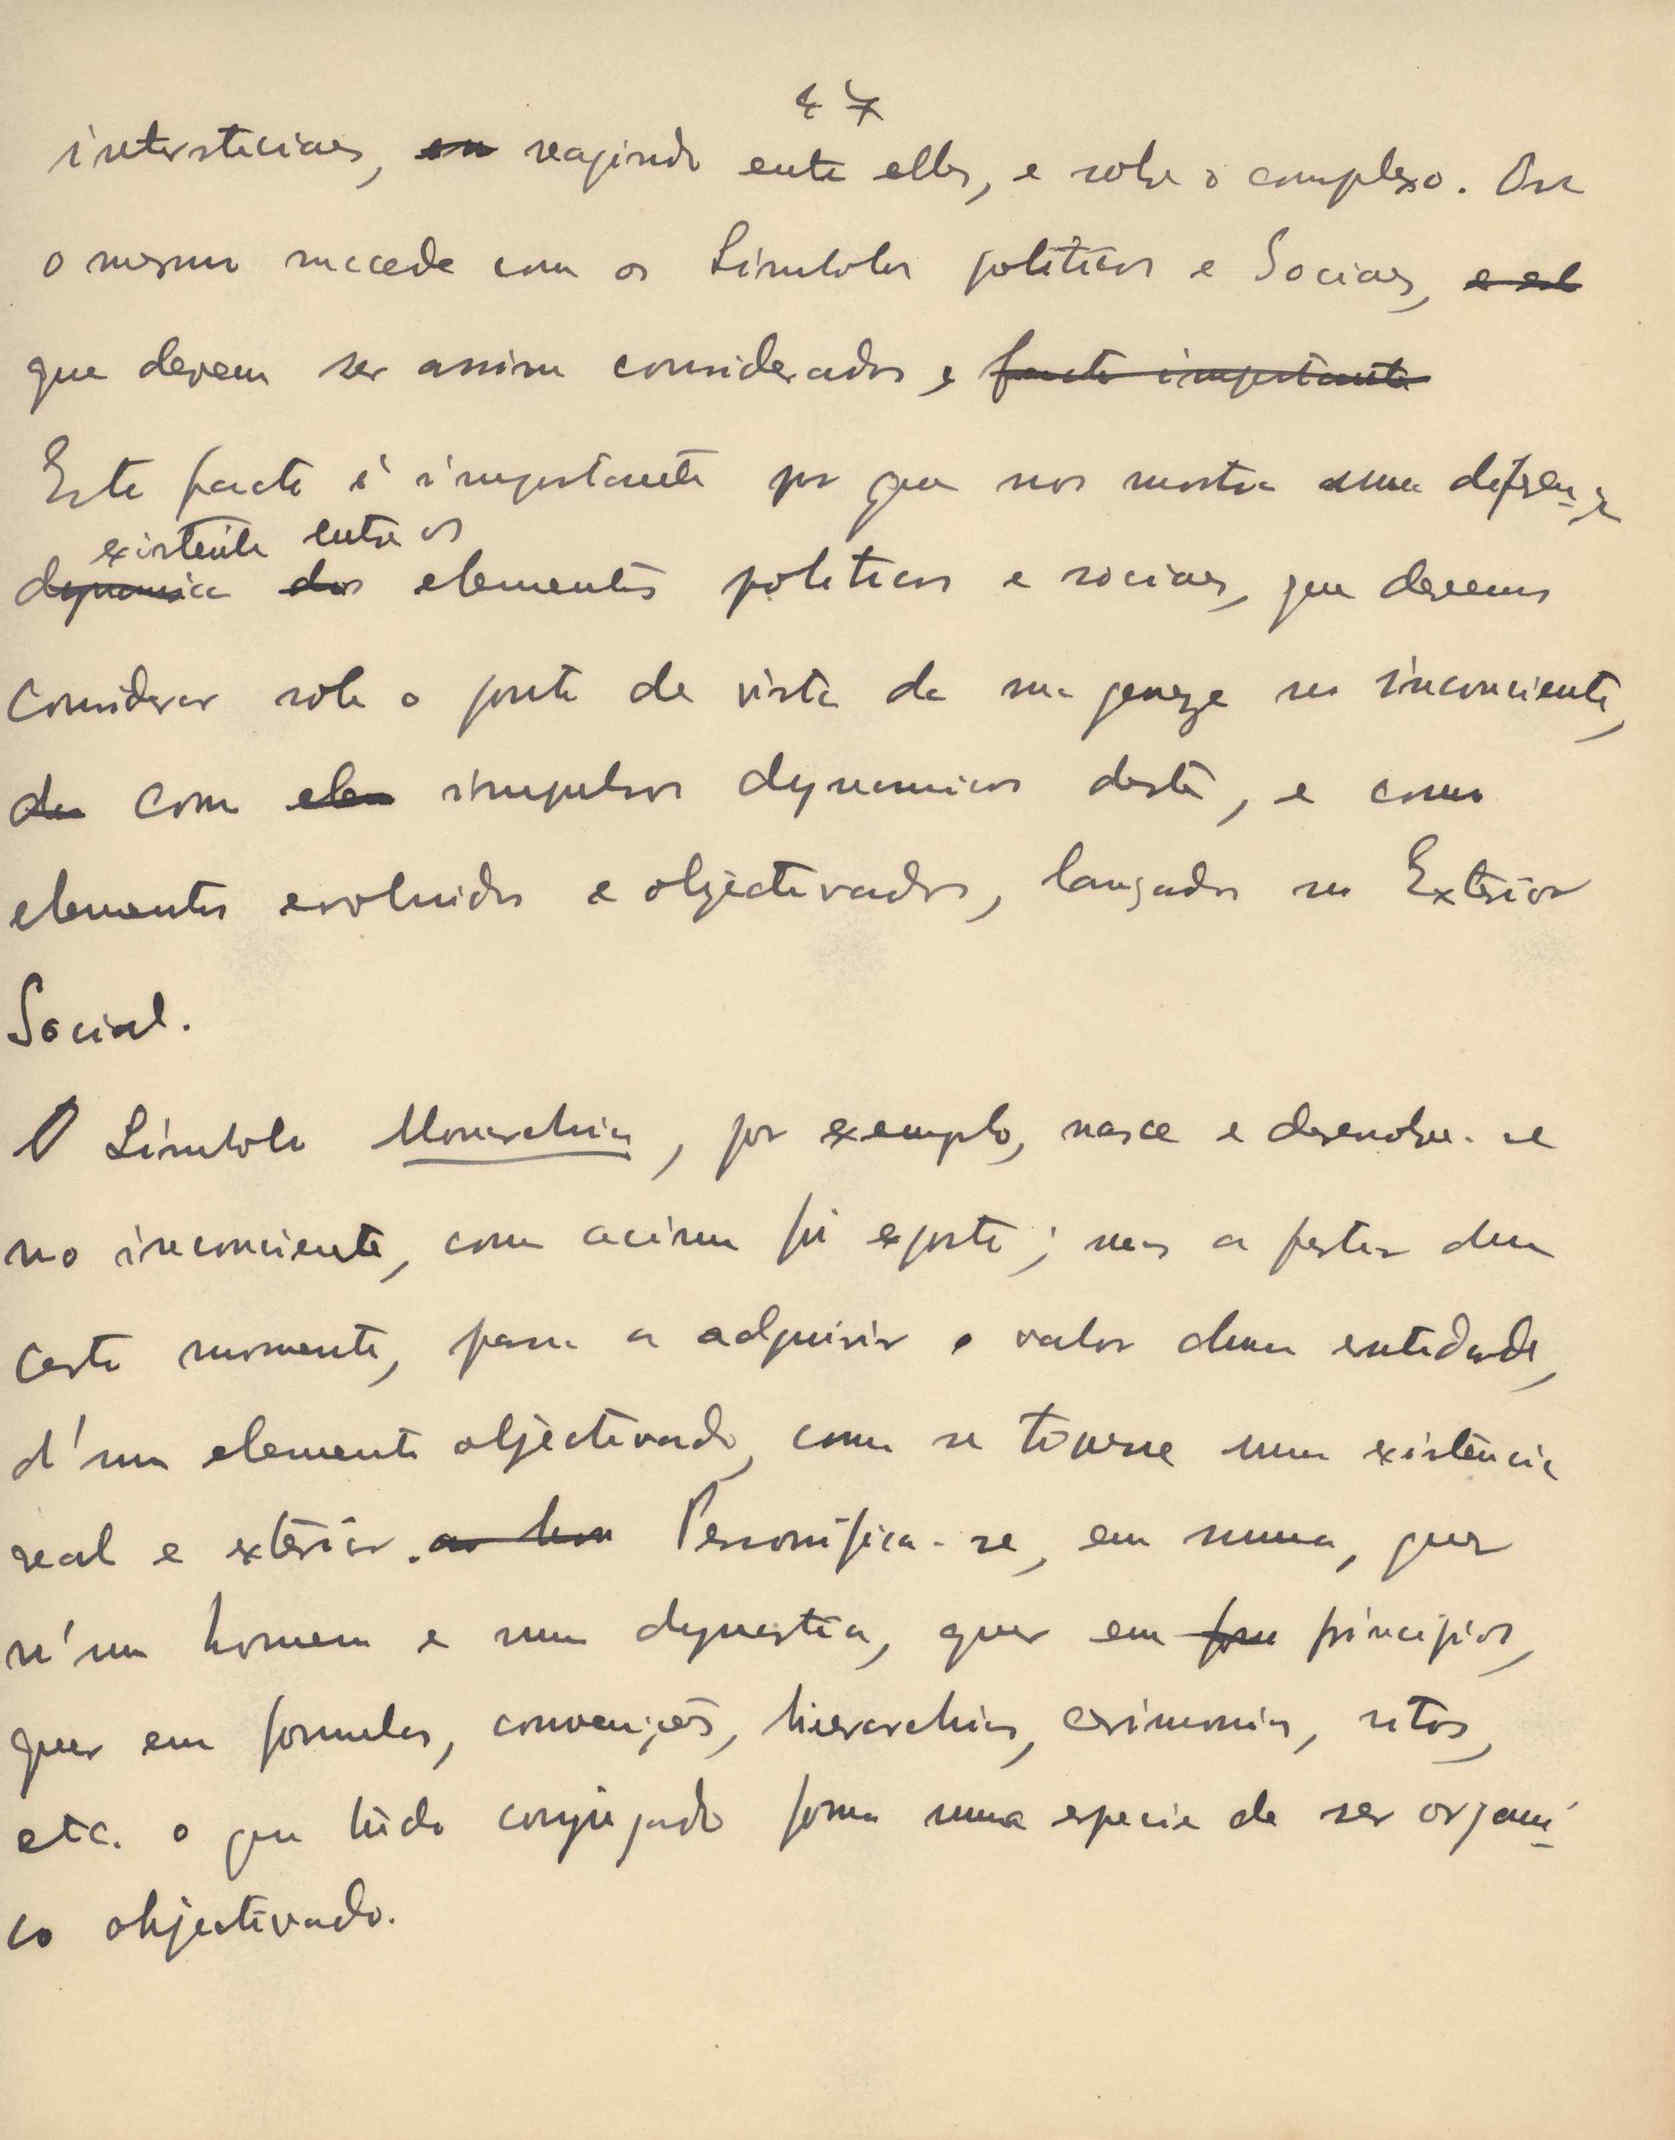 47
intersticiaes, reagindo entre elles, e sobre o complexo. Ora
o mesmo succede com os Simbolos politicos e Sociaes, e
que devem ser assim considerados, facto importante
Este facto é importante por que nos mostra uma diferença
existente entre os
dynamica dos elementos politicos e sociaes, que devemos
Considerar sob o ponto de vista da sua geneze no inconciente,
com impulsos dynamicos deste, e como
elementos evoluidos e objectivados, lançados no Exterior
Social.
O Simbolo Monarchia, por exemplo, nasce e desenvolve-se
no inconciente, como acima foi exposto; mas a partir dum
certo momento, passa a adquirir o valor duma entidade,
d'um elemento objectivado, como se tivesse uma existencia
real e exterior. Personifica-se, em summa, quer
n'um homem e numa dynastia, quer em principios,
quer em formulas, convenções, hierarchias, cerimonias, ritos,
etc. o que tudo conjugado forma uma especie de ser organi-
co objectivado.